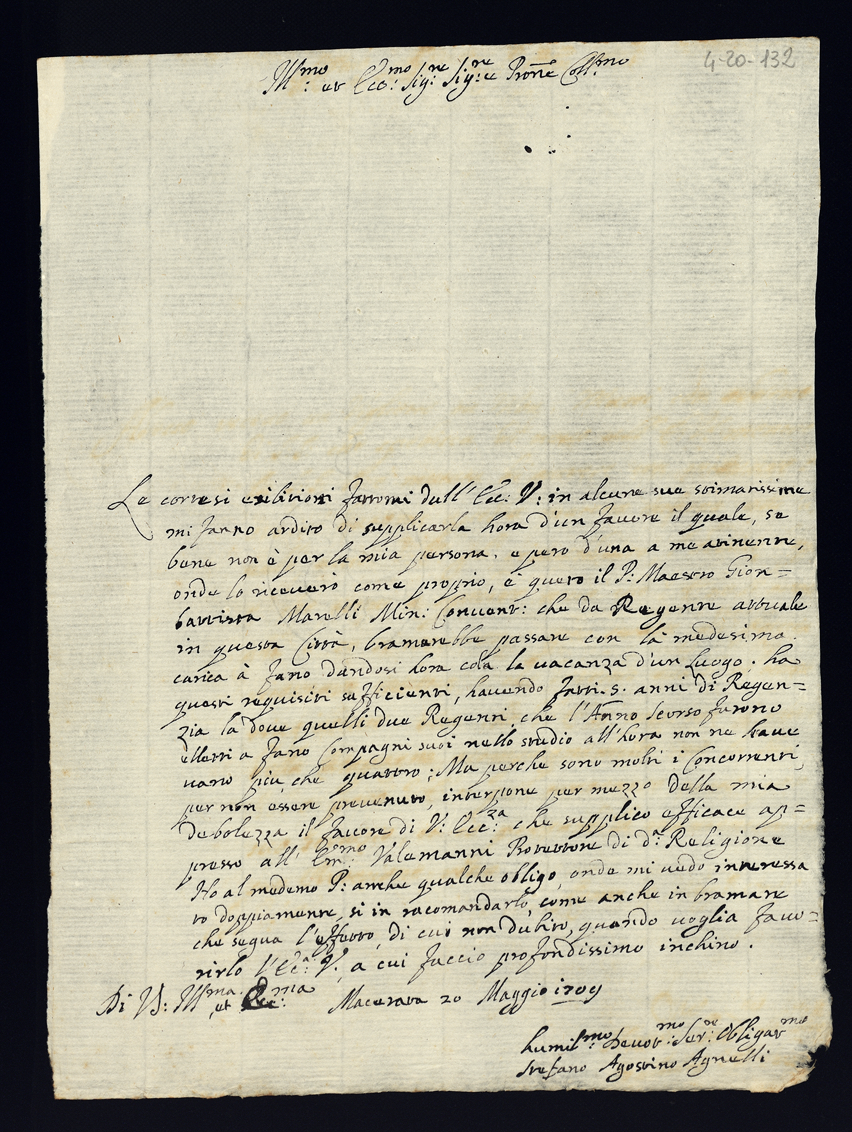 4-20-132
Ill:mo et Ecc:mo Sig:re Sig:re Prone Coll:mo
Le cortesi esibitioni fattomi dall'Ecc: V: in alcune sue stimatissime
mi fanno ardito di supplicarla hora d'un favore il quale, se
bene non è per la mia persona, e però d'una a me attinente,
onde lo riceverò come proprio, è questo il P: Maestro Gion=
battista Marelli Min: Convent: che da Regente attuale
in questa Città, bramarebbe passare con la medesima
carica à Fano dandosi hora colà la vacanza d'un Luogo. ha
questi requisiti sufficienti, havendo fatti .5. anni di Regen=
zia la dove quelli due Regenti, che l'Anno scorso furono
elletti a Fano Compagni suoi nello studio all'hora non ne have
vano più, che quattro; Ma perche sono molti i Concorrenti,
per non essere prevenuto, interpone per mezzo della mia
debolezza il favore di V: Ecc:za che supplico efficace ap=
presso all' Em:mo Valemanni Protettore di d:a Religione
Ho al medemo P: anche qualche obligo, onde mi vedo interessa
to doppiamente, si in racomandarlo, come anche in bramare
che segua l'effetto, di cui non dubito, quando voglia favo=
rirlo l'Ec:a V:, a cui faccio profondissimo inchino.
Di V: Ill:ma et Ecc:ma Macerata 20 Maggio 1709
humil:mo Devot:mo Ser:re Obligat:mo
Stefano Agostino Agnelli